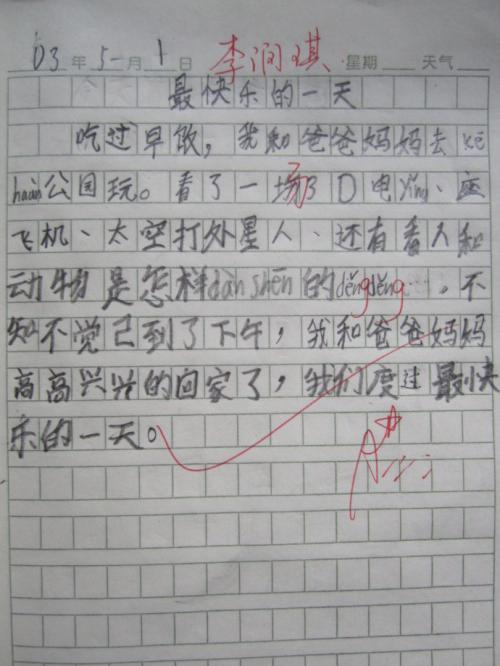 03年5月1日 李润琪 星期 天气
最快乐的一天
吃过早饭，我和爸爸妈妈去kē
huàn公园玩。看了一场3D电yǐng、座
飞机、太空打外星人、还有看人和
动物是怎样dàn shēn的děngděng……。不
知不觉已到了下午，我和爸爸妈妈
高高兴兴的回家了，我们度过最快
乐的一天。